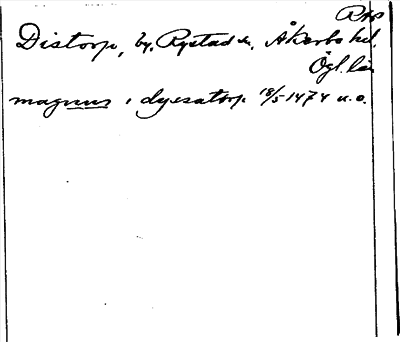 RAP
Distorp, by, Rystad sn, Åkerbo hd,
Ögl. län
magnus i dyesatorp 18/5 1474 u.o.